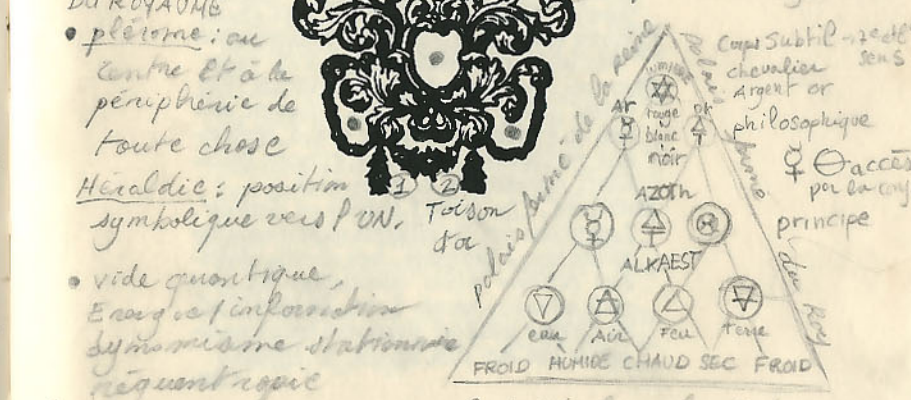 DU ROYAUME
• plérome : au
centre Et à la
périphérie de
toute chose
Héraldie : position
symbolique vers l'UN.
1 2
Toison
d'or
• vide quantique,
Energie/information
stationnaire
palais fermé de la reine
palais fermé du Roy
lumière
rouge
blanc
noir
Ar
or
AZOTH
ALKAEST
eau Air Feu terre
FROID HUMIDE CHAUD SEC FROID
Corps Subtil
sens
chevalier
Argent or
philosophique
accès
par la
principe